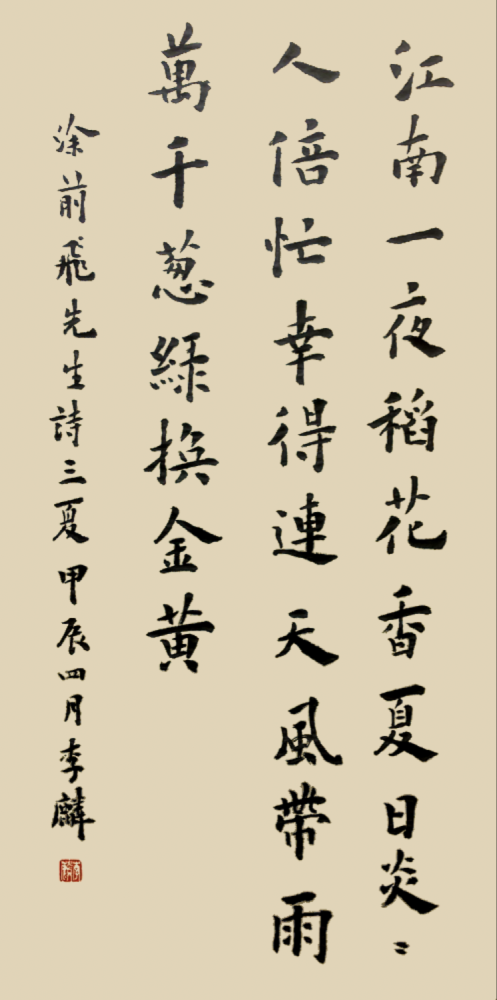 江南一夜稻花香夏日炎〻
人倍忙幸得連天風帶雨
萬千葱緑换金黄
涂前飛先生詩三夏甲辰四月李麟